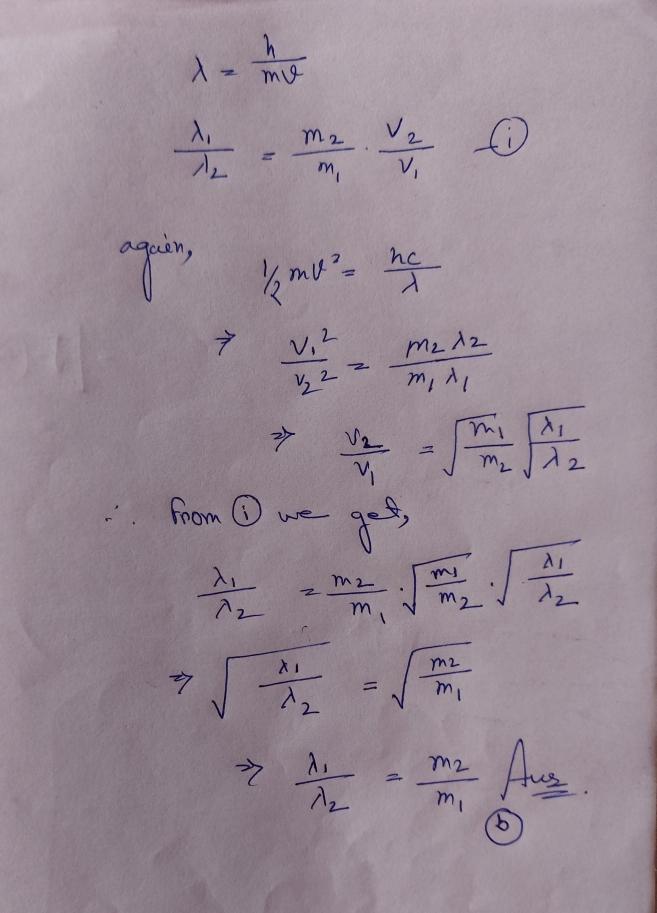 λ = h/mv
λ₁/λ₂ = m₂/m₁ · V₂/V₁ — (i)
again, 1/2 mv² = hc/λ
⇒ V₁²/V₂² = m₂λ₂/m₁λ₁
⇒ V₂/V₁ = √(m₁/m₂) √(λ₁/λ₂)
∴ From (i) we get,
λ₁/λ₂ = m₂/m₁ · √(m₁/m₂) · √(λ₁/λ₂)
⇒ √(λ₁/λ₂) = √(m₂/m₁)
⇒ λ₁/λ₂ = m₂/m₁ Ans.
(b)